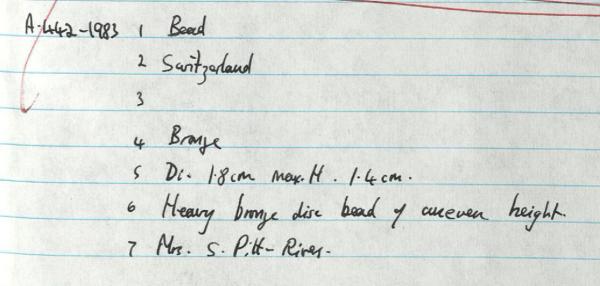 A.442-1983 1 Bead
2 Switzerland
3
4 Bronze
5 Di. 1.8cm max. H. 1.4cm.
6 Heavy bronze disc bead of uneven height.
7 Mrs. S. Pitt-Rivers.